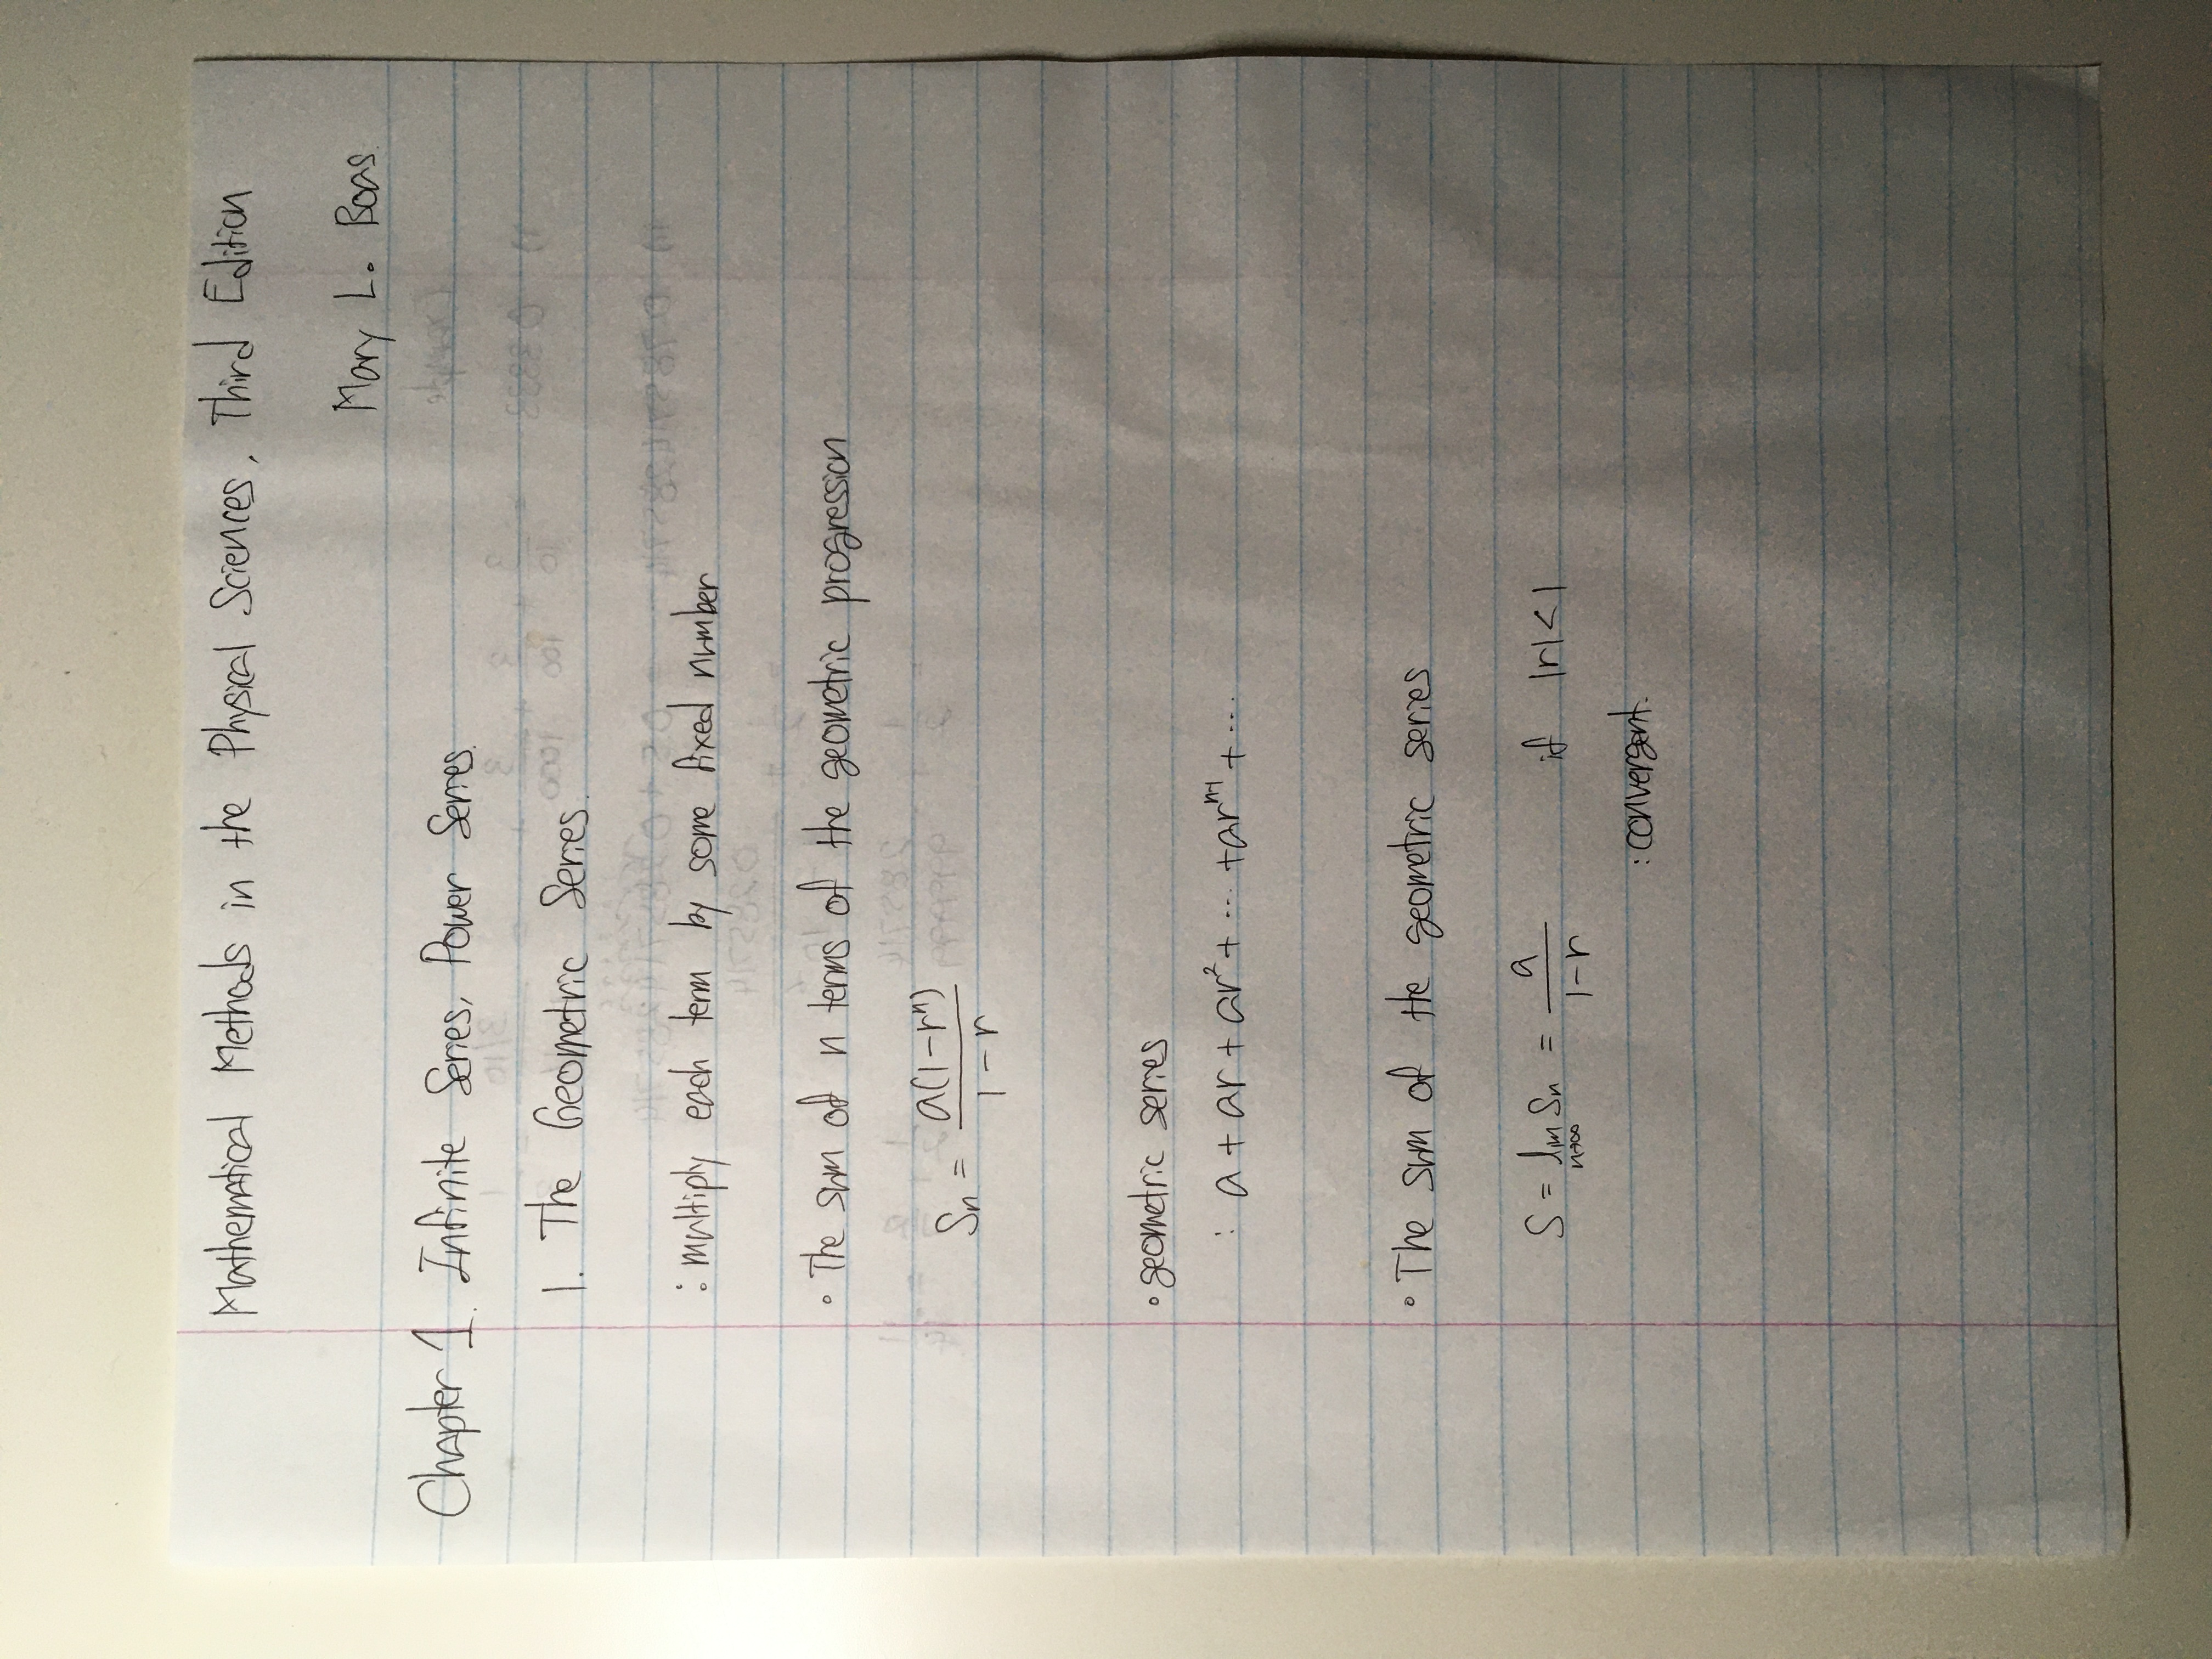 Mathematical Methods in the Physical Sciences, Third Edition
Mary L. Boas.
Chapter 1. Infinite Series, Power Series.
1. The Geometric Series.
: multiply each term by some fixed number
∘ The sum of n terms of the geometric progression
Sₙ = a(1-rⁿ) / 1-r
∘ geometric series
: a + ar + ar² + ... + arⁿ⁻¹ + ...
∘ The sum of the geometric series
S = lim n→∞ Sₙ = a / 1-r if |r| < 1
: convergent.